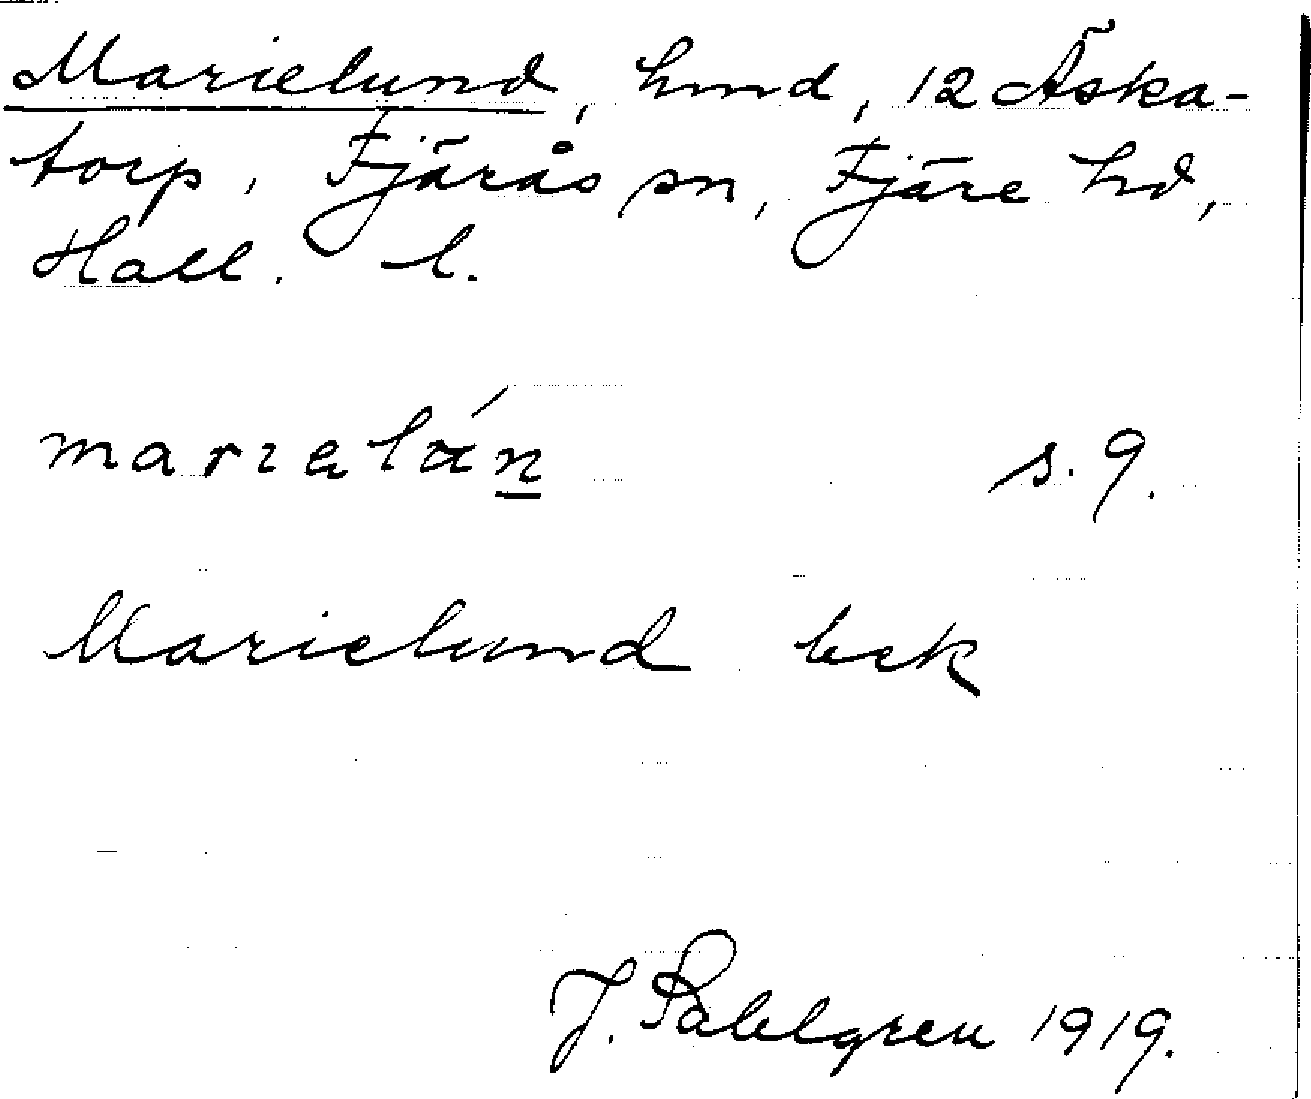 Marielund, hmd, 12 Äska-
torp, Fjärås sn, Fjäre hd,
Hall. l.
marıeláṉ s. 9.
Marielund bek
J. Sahlgren 1919.